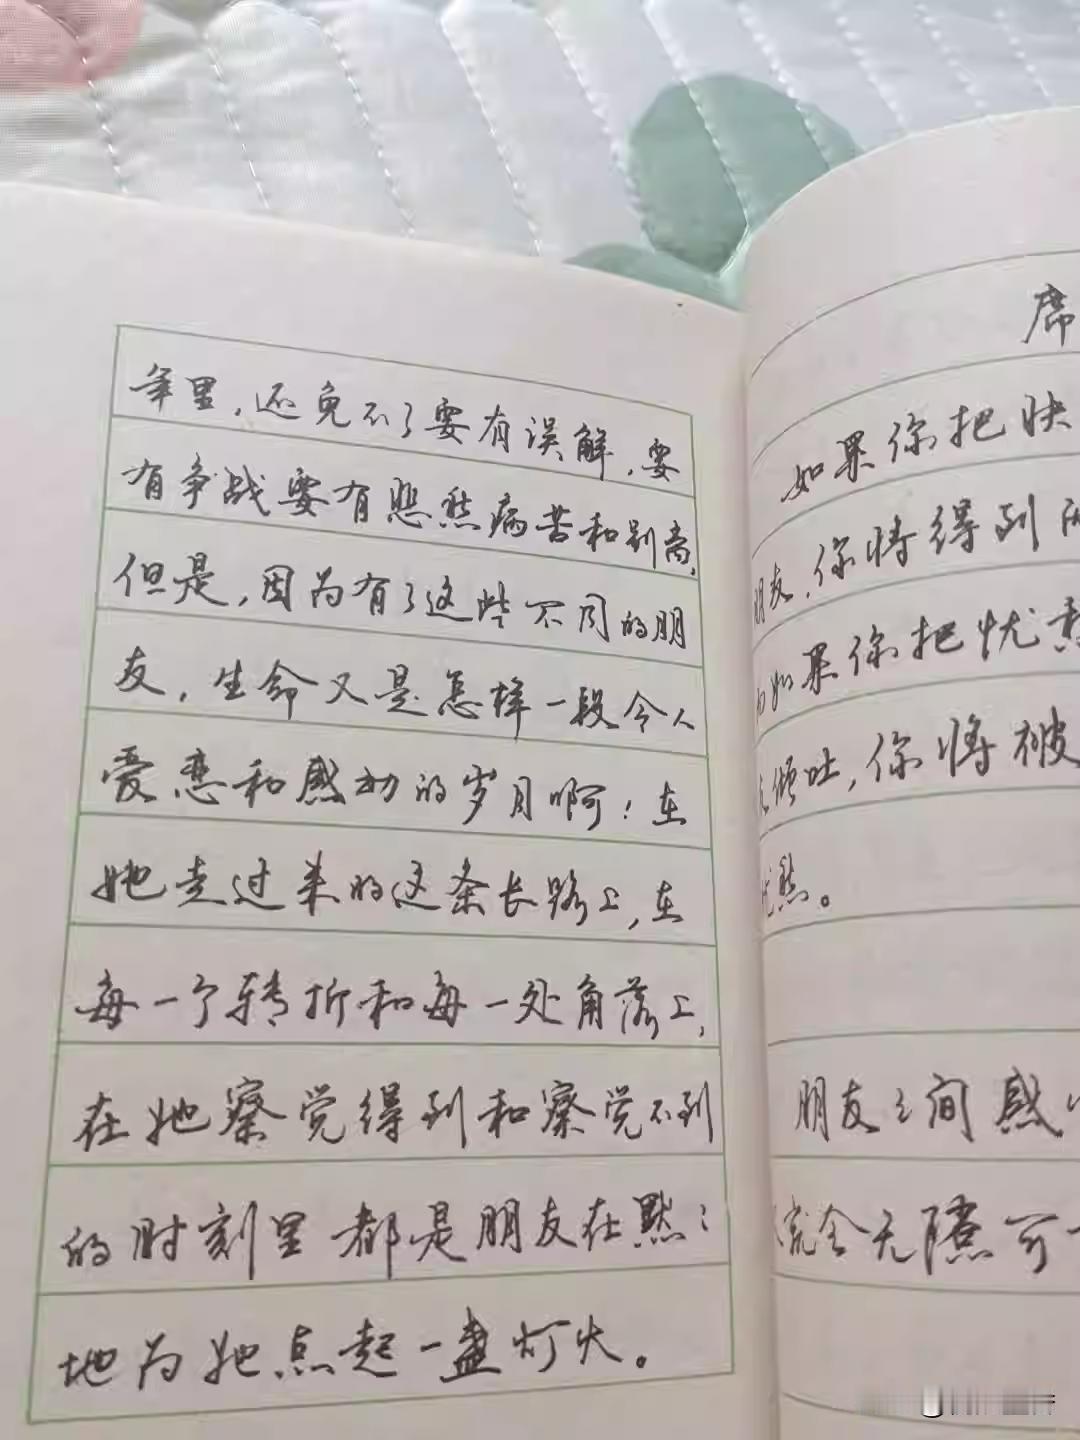 年里，还免不了要有误解，要
有争战要有悲愁病苦和别离，
但是，因为有了这些不同的朋
友，生命又是怎样一段令人
爱恋和感动的岁月啊！在
她走过来的这条长路上，在
每一个转折和每一处角落上，
在她察觉得到和察觉不到
的时刻里都是朋友在默々
地为她点起一盏灯火。
席
如果你把快
朋友，你将得到两
如果你把忧愁
倾吐，你将被
忧愁。
朋友之间感
完全无隐可